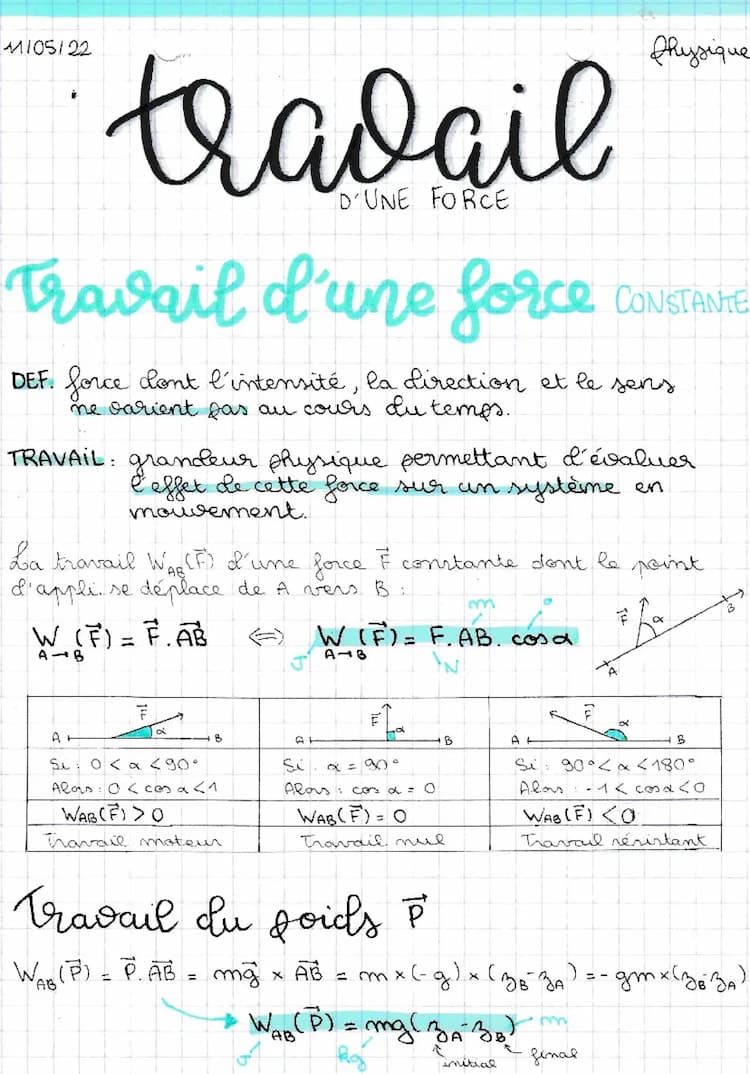 11/05/22
Physique
travail
D'UNE FORCE
Travail d'une force CONSTANTE
DEF. force dont l'intensité, la direction et le sens
ne varient pas au cours du temps.
TRAVAIL : grandeur physique permettant d'évaluer
l'effet de cette force sur un système en
mouvement.
La travail W_AB(F⃗) d'une force F⃗ constante dont le point
d'appli. se déplace de A vers B :
m °
W_A→B(F⃗) = F⃗.AB⃗ ⇔ W_A→B(F⃗) = F.AB.cosα
J N
F⃗ α A B
F⃗ α A B
F⃗ α A B
F⃗ α A B
Si : 0 < α < 90° Si : α = 90° Si : 90° < α < 180°
Alors : 0 < cos α < 1 Alors : cos α = 0 Alors : -1 < cosα < 0
W_AB(F⃗) > 0 W_AB(F⃗) = 0 W_AB(F⃗) < 0
Travail moteur Travail nul Travail résistant
Travail du poids P⃗
W_AB(P⃗) = P⃗.AB⃗ = mg⃗ × AB⃗ = m × (-g) × (z_B - z_A) = - gm × (z_B - z_A)
W_AB(P⃗) = mg(z_A - z_B) m
J kg initial final